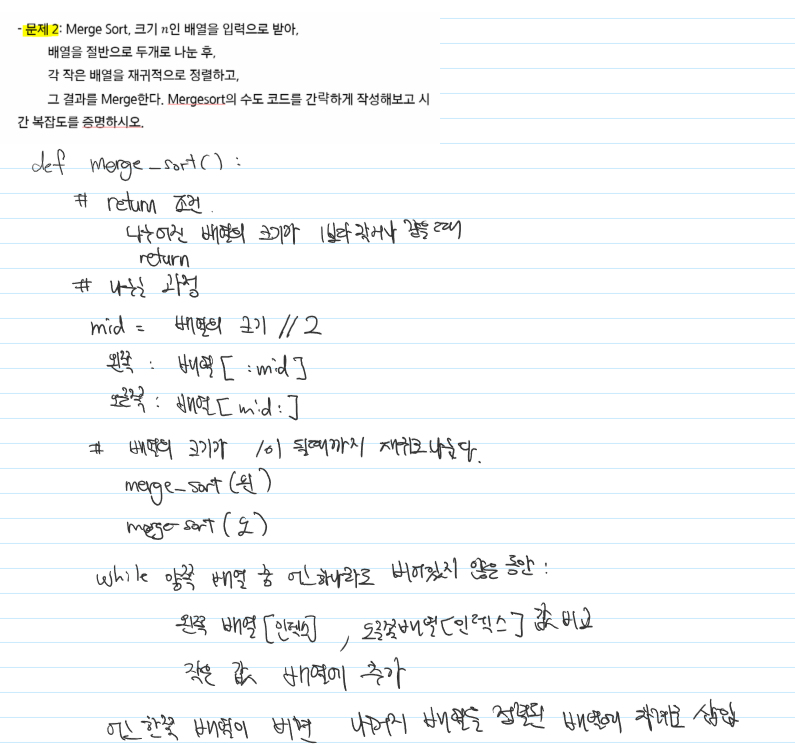 - 문제 2: Merge Sort, 크기 n인 배열을 입력으로 받아,
배열을 절반으로 두개로 나눈 후,
각 작은 배열을 재귀적으로 정렬하고,
그 결과를 Merge한다. Mergesort의 수도 코드를 간략하게 작성해보고 시
간 복잡도를 증명하시오.
def merge_sort():
# return 조건.
나누어진 배열의 크기가 1보다 작거나 같을 때
return
# 나눈는 과정
mid = 배열의 크기 // 2
왼쪽 : 배열[ :mid]
오른쪽 : 배열[mid:]
# 배열의 크기가 1이 될때까지 재귀로 나눈다.
merge_sort(왼)
merge-sort(오)
while 양쪽 배열 중 어느 하나라도 비어있지 않은 동안:
왼쪽 배열[인덱스], 오른쪽배열[인덱스] 값 비교
작은 값 배열에 추가
어느 한쪽 배열이 비면 나머지 배열을 정렬된 배열에 차례로 삽입